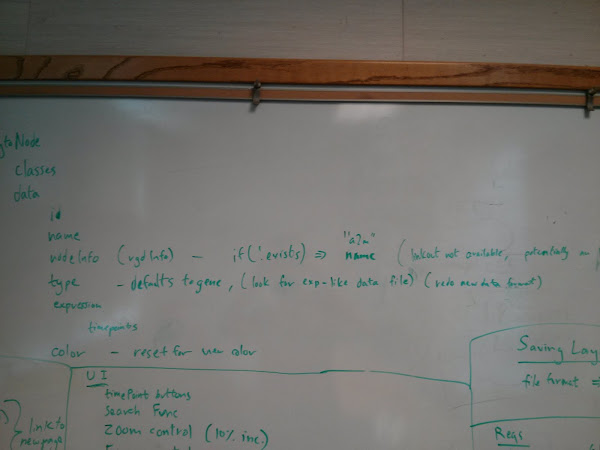 Node
classes
data
id
name
nodeInfo (rgdInfo) - if(!.exists) => name (linkout not available, potentially
type - defaults to gene, (look for exp-like data file) (redo new data format)
expression
timepoints
color - reset for new color
UI
timePoint buttons
Search Func
Zoom control (10% inc.)
link to
new page
Saving Lay
file format =>
Reqs